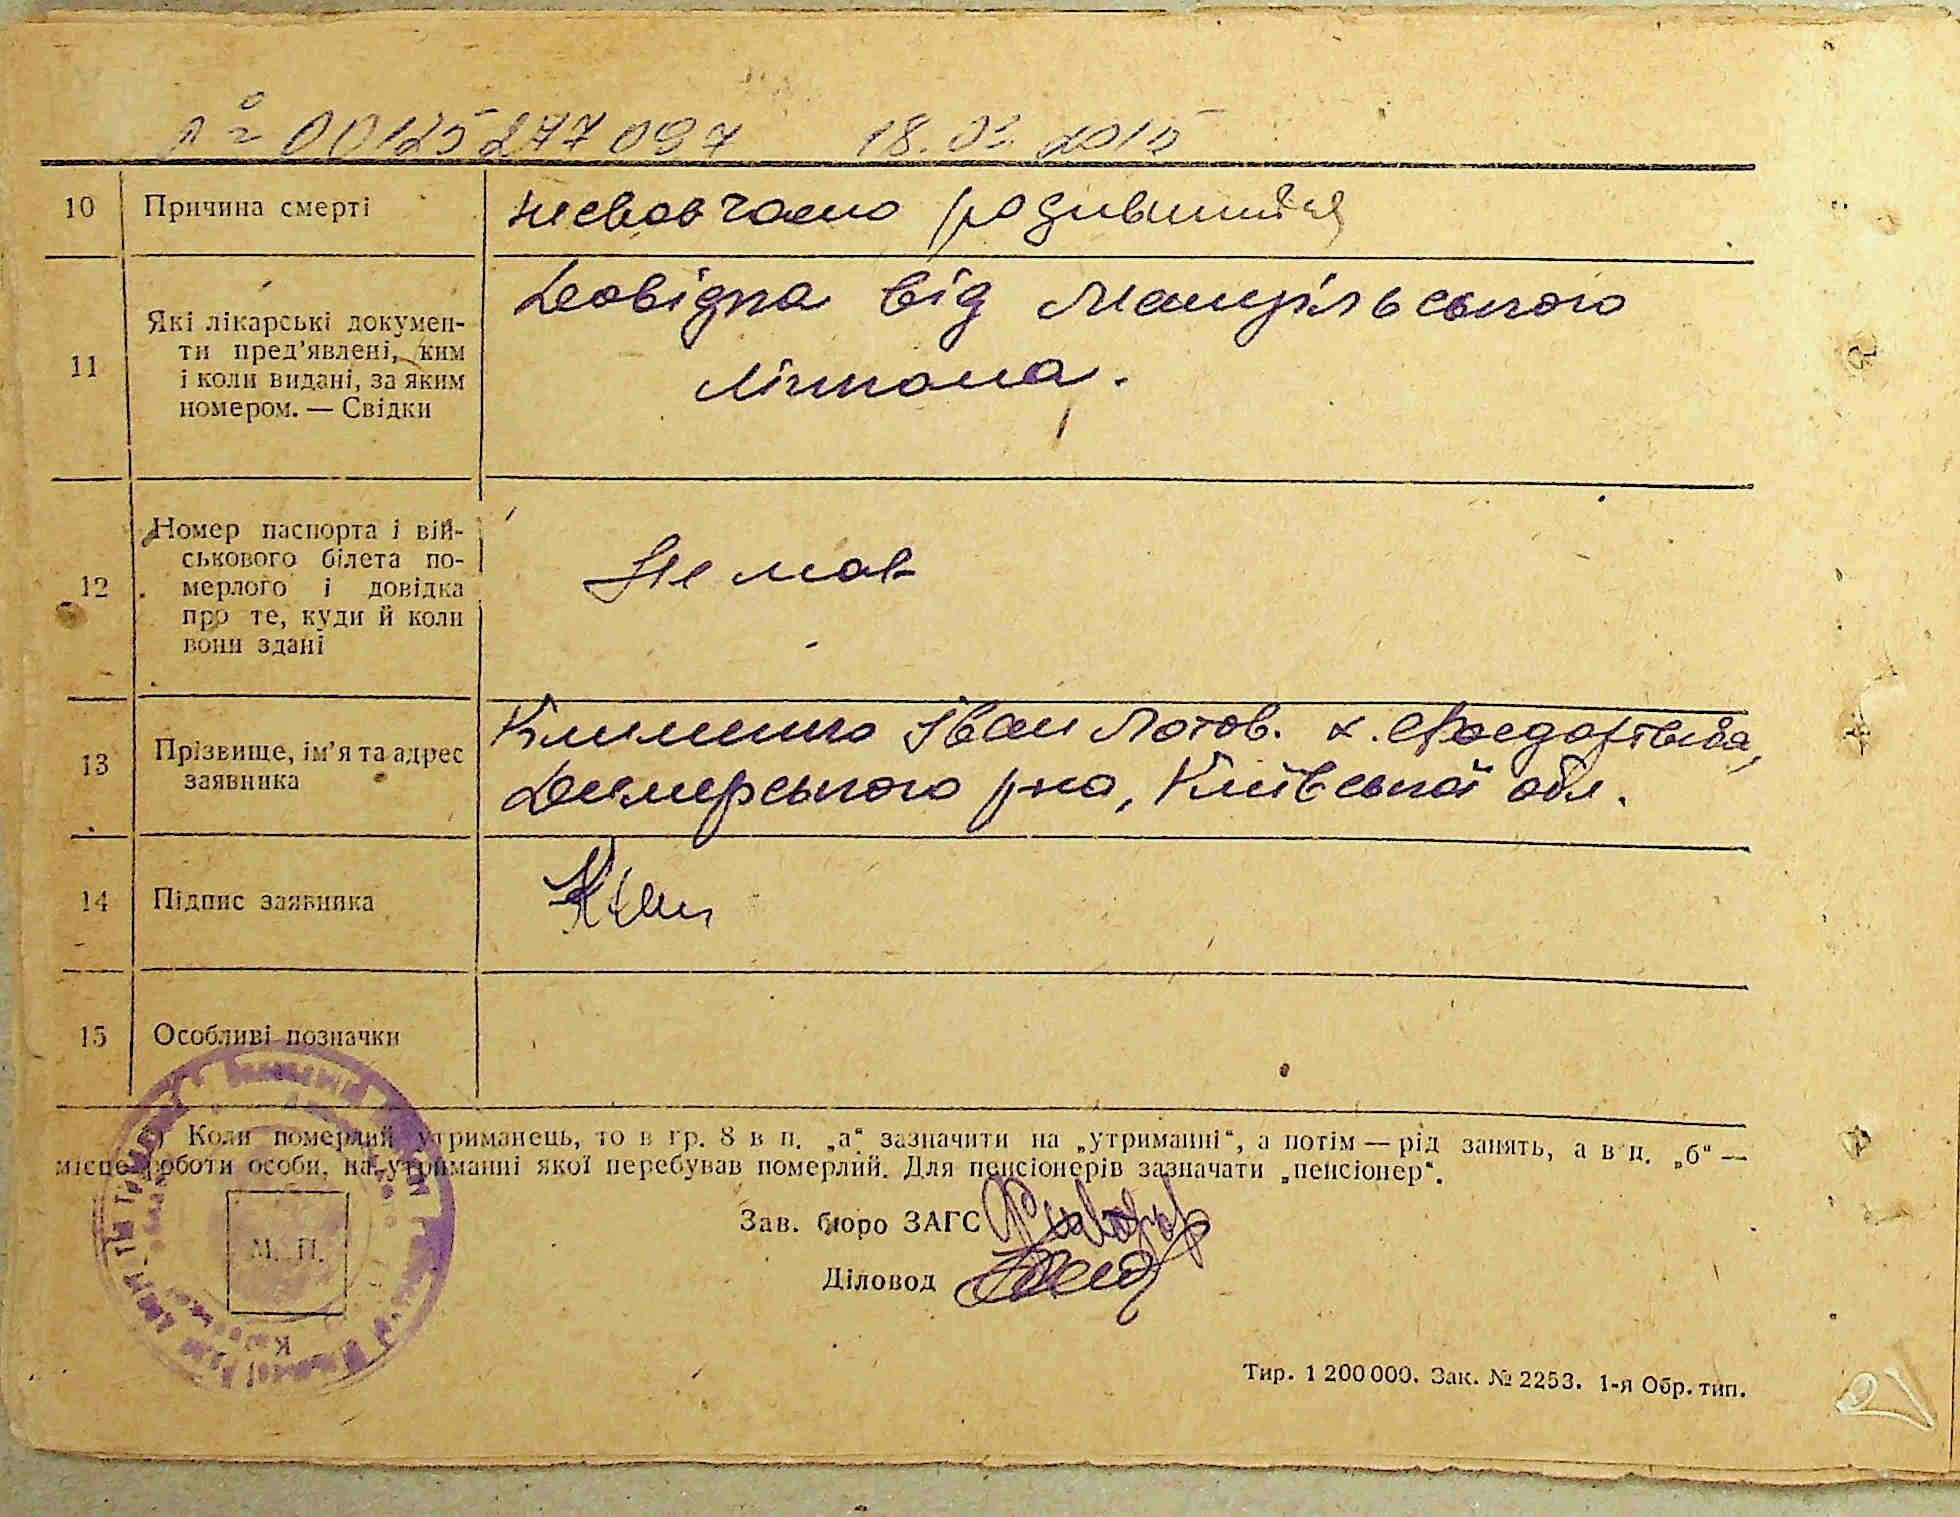 № 00125277097 18.03.2015
10 Причина смерті несвоєчасно родившийся
11 Які лікарські документи пред'явлені, ким і коли видані, за яким номером. — Свідки
Довідка від
лікпома.
12 Номер паспорта і військового білета померлого і довідка про те, куди й коли вони здані
Не мав
13 Прізвище, ім'я та адрес заявника
Клименко Іван х.
Димерського р-на, Київської обл.
14 Підпис заявника
Клим
15 Особливі позначки
Коли померлий утриманець, то в гр. 8 в п. „а“ зазначити на „утриманні“, а потім — рід занять, а в п. „б“ —
місце роботи особи, на утриманні якої перебував померлий. Для пенсіонерів зазначати „пенсіонер“.
М. П.
Зав. бюро ЗАГС
Діловод
Тир. 1 200 000. Зак. № 2253. 1-я Обр. тип.